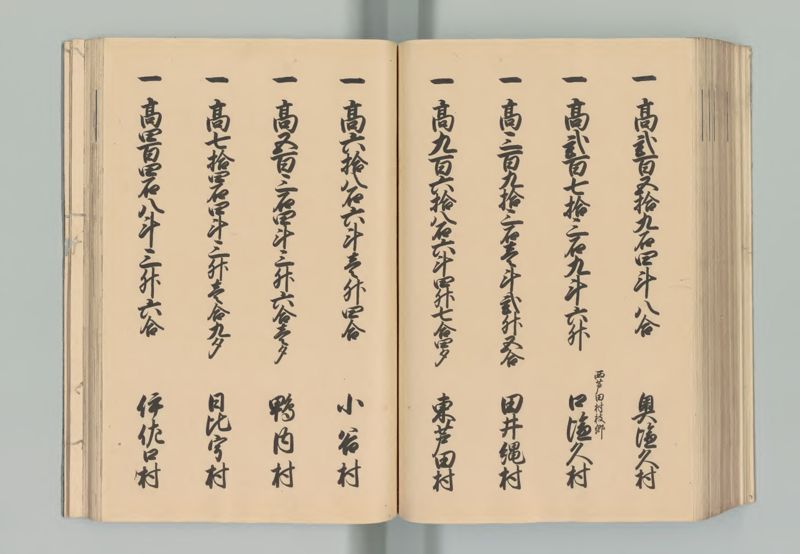 一 高弐百五拾九石四斗八合 奥塩久村
一 高弐百七拾三石九斗六升
西芦田村枝郷
口塩久村
一 高三百九拾三石壱斗弐升五合 田井縄村
一 高九百六拾八石六斗四升七合四夕 東芦田村
一 高六拾八石六斗壱升四合 小谷村
一 高五百三石四斗三升六合壱夕 鴨内村
一 高七拾四石四斗三升壱合九夕 日比宇村
一 高四百四石八斗三升六合 伊佐口村